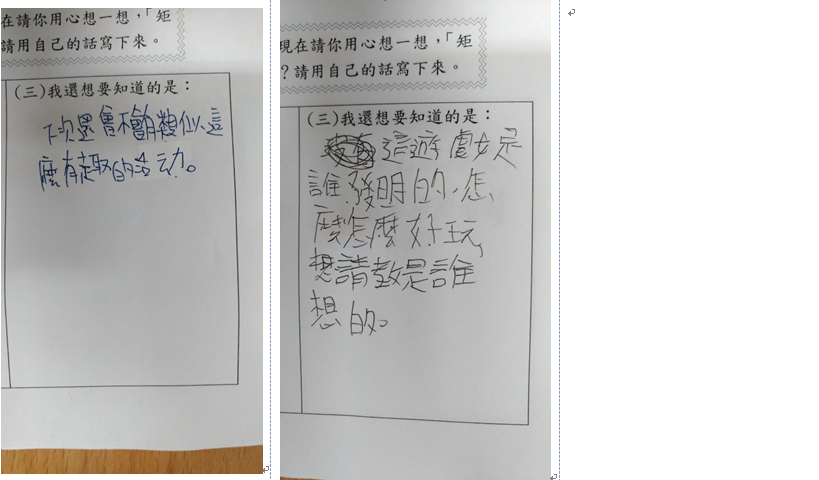 在請你用心想一想，「矩
請用自己的話寫下來。
(三)我還想要知道的是：
下次還會不會有類似這
麼有趣的活动。
現在請你用心想一想，「矩
？請用自己的話寫下來。
(三)我還想要知道的是：
這遊戲是
誰發明的，怎
麼怎麼好玩，
想請教是誰
想的。